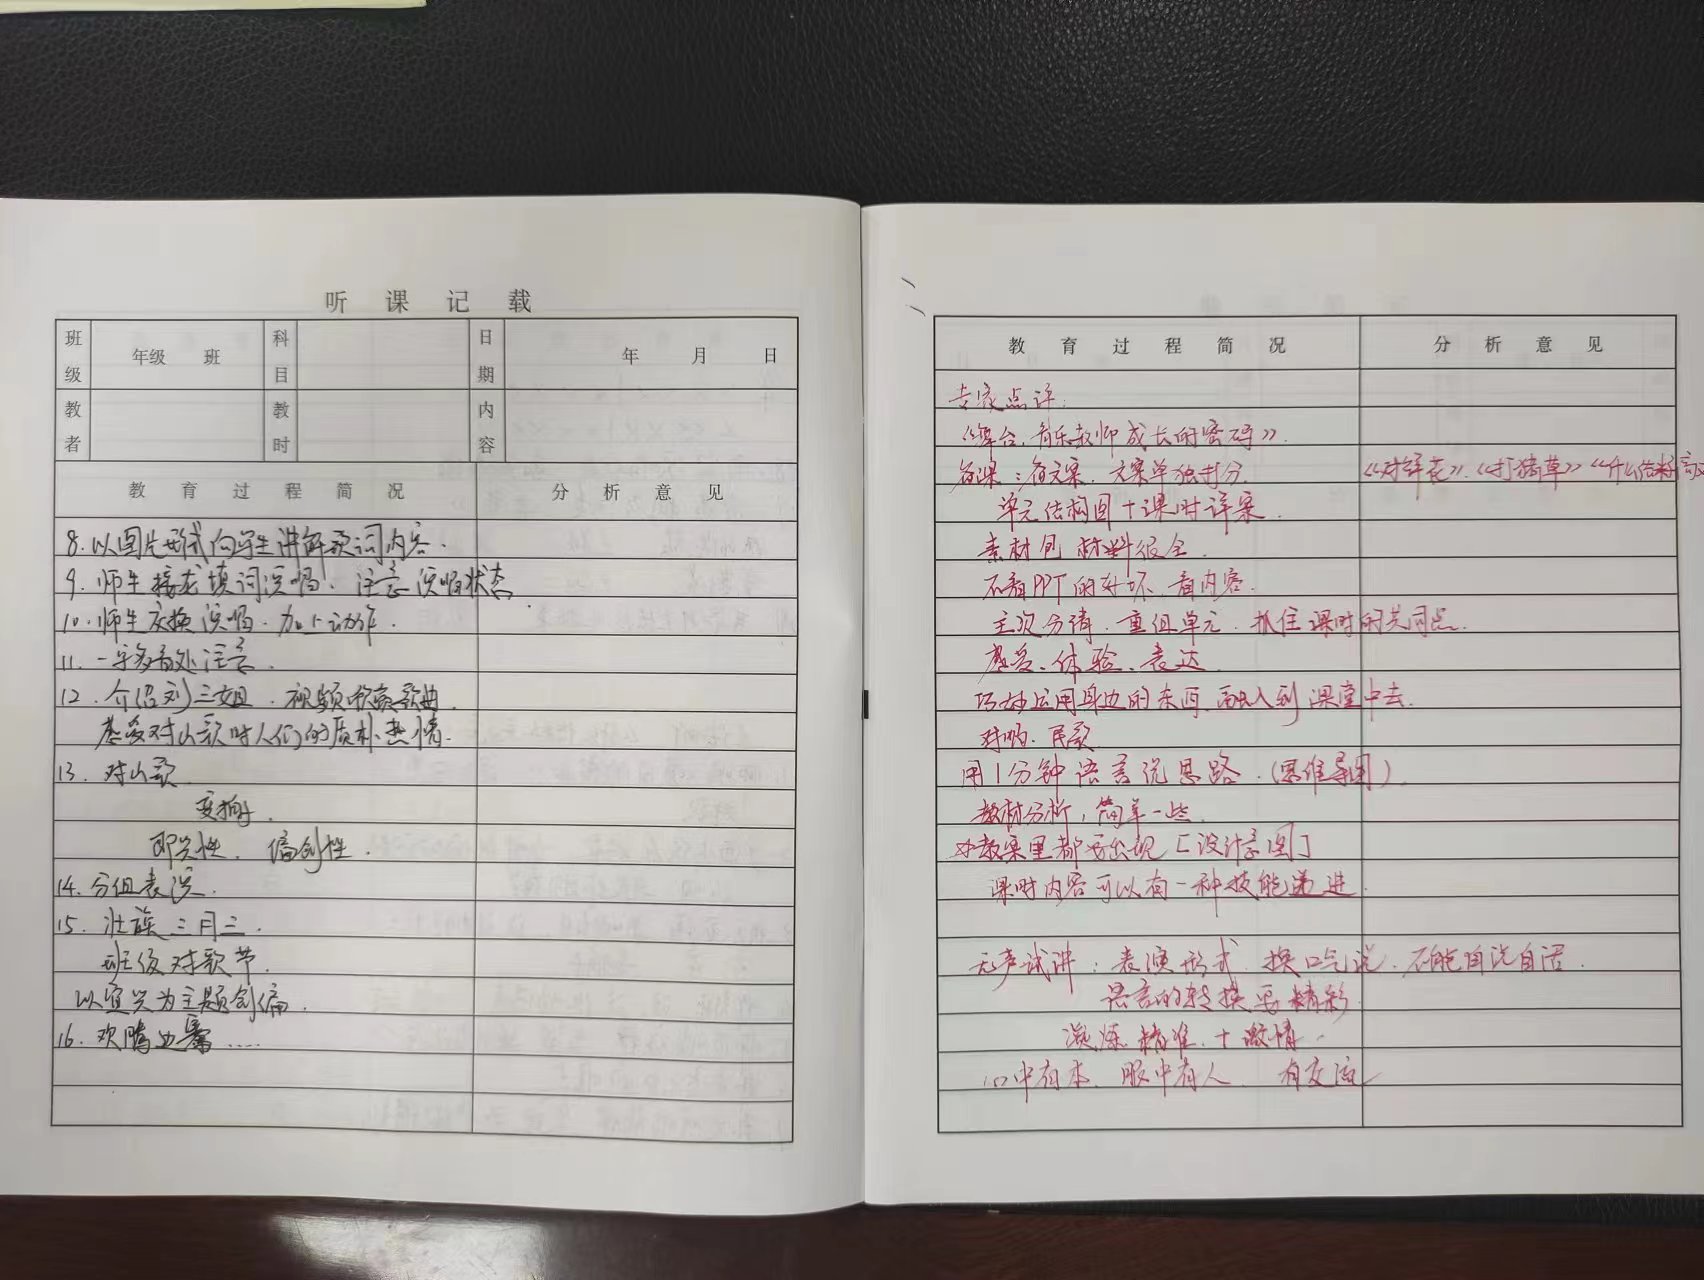 听课记载
班级 年级 班 科目 日期 年 月 日
教者 教时 内容
教育过程简况 分析意见
8.以图片形式向学生讲解歌词内容.
9.师生接龙填词演唱.注意演唱状态
10.师生交换演唱.加上动作.
11.一字多音处注意.
12.介绍刘三姐.视频欣赏歌曲.
感受对山歌时人们的质朴、热情.
13.对山歌
变拍子.
即兴性.编创性.
14.分组表演.
15.壮族三月三.
班级对歌节.
以宜兴为主题创编.
16.欢腾边寨……
教育过程简况 分析意见
专家点评:
《舞台,音乐教师成长的密码》.
备课:备文案,文案单独打分. 《对鲜花》.《打猪草》《什么结籽高
单元结构图+课时详案.
素材包 材料很全.
不看PPT的好坏、看内容.
主次分清.重组单元.抓住课时的共同点.
感受、体验、表达.
巧妙运用身边的东西,融入到课堂中去.
对唱.民歌
用1分钟语言说思路.(思维导图).
教材分析,简单一些.
教案里都要出现[设计意图]
课时内容可以有一种技能递进.
无声试讲:表演形式.换口气说.不能自说自话.
语言的转换要精彩.
凝练、精准.+激情.
心中有本、眼中有人. 有交流